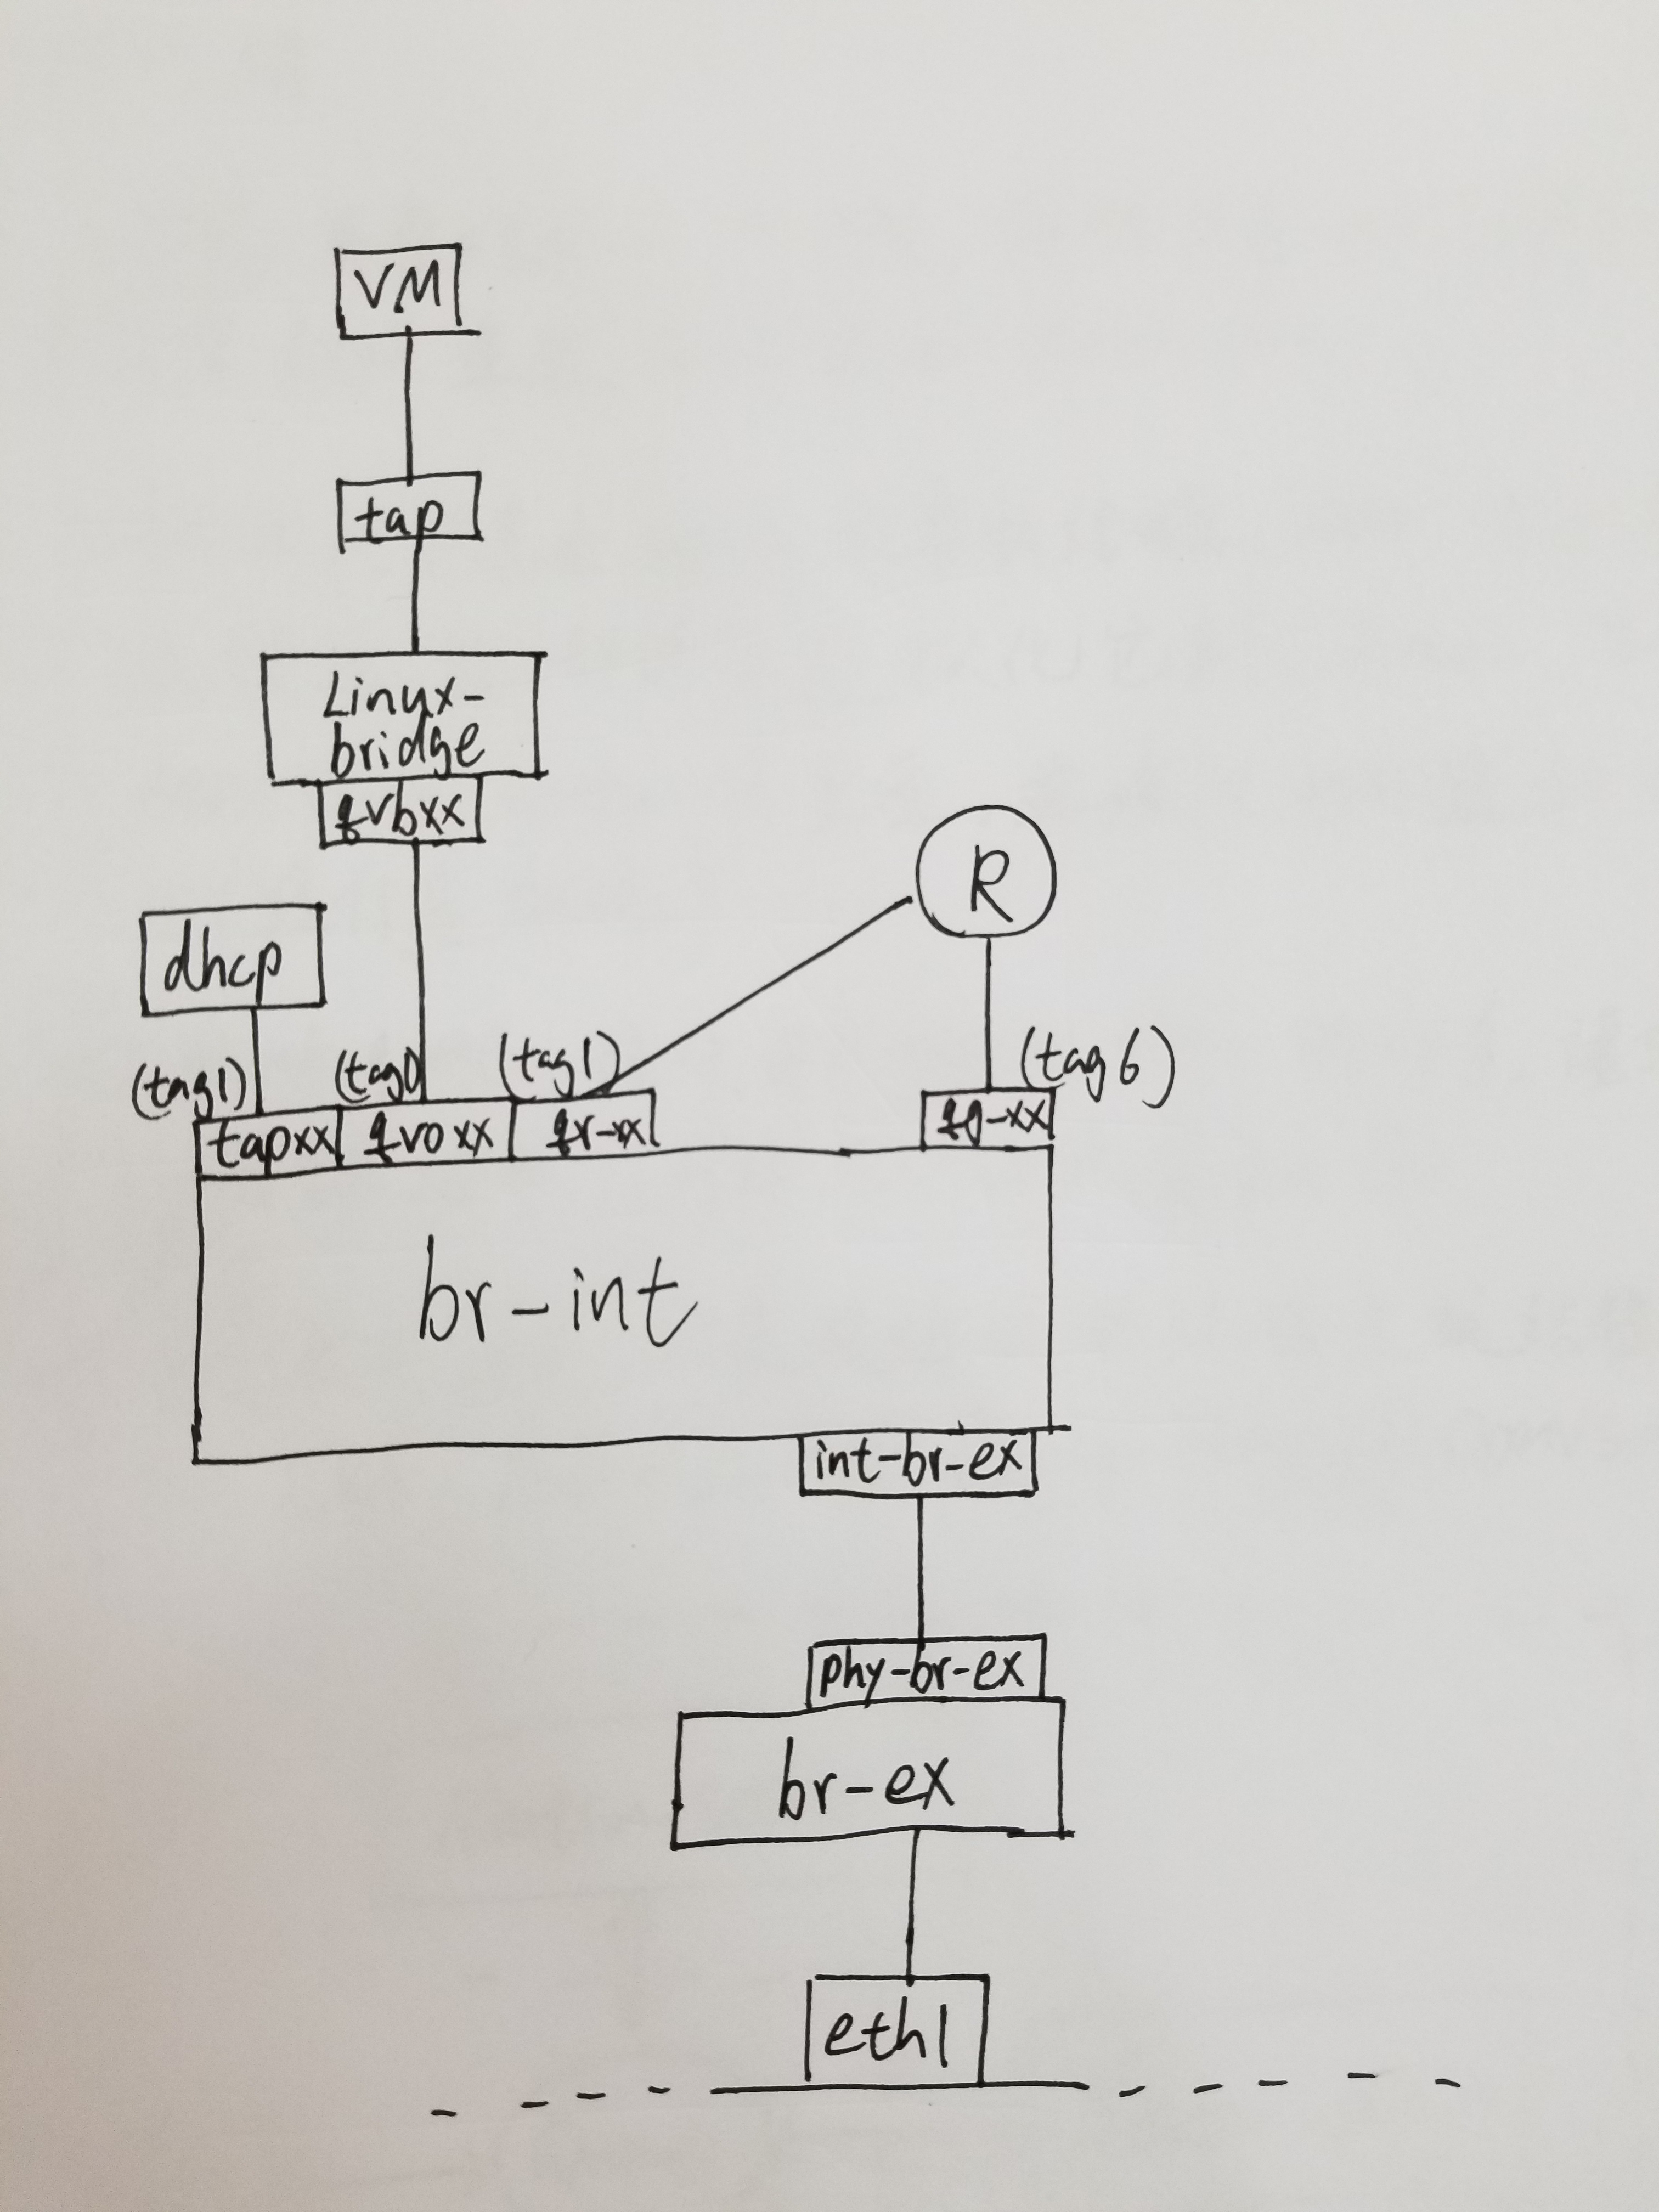 VM
tap
Linux-
bridge
qvbxx
R
dhcp
(tag1)
(tag1)
(tag1)
(tag 6)
tapxx
qvoxx
qr-xx
qg-xx
br-int
int-br-ex
phy-br-ex
br-ex
eth1